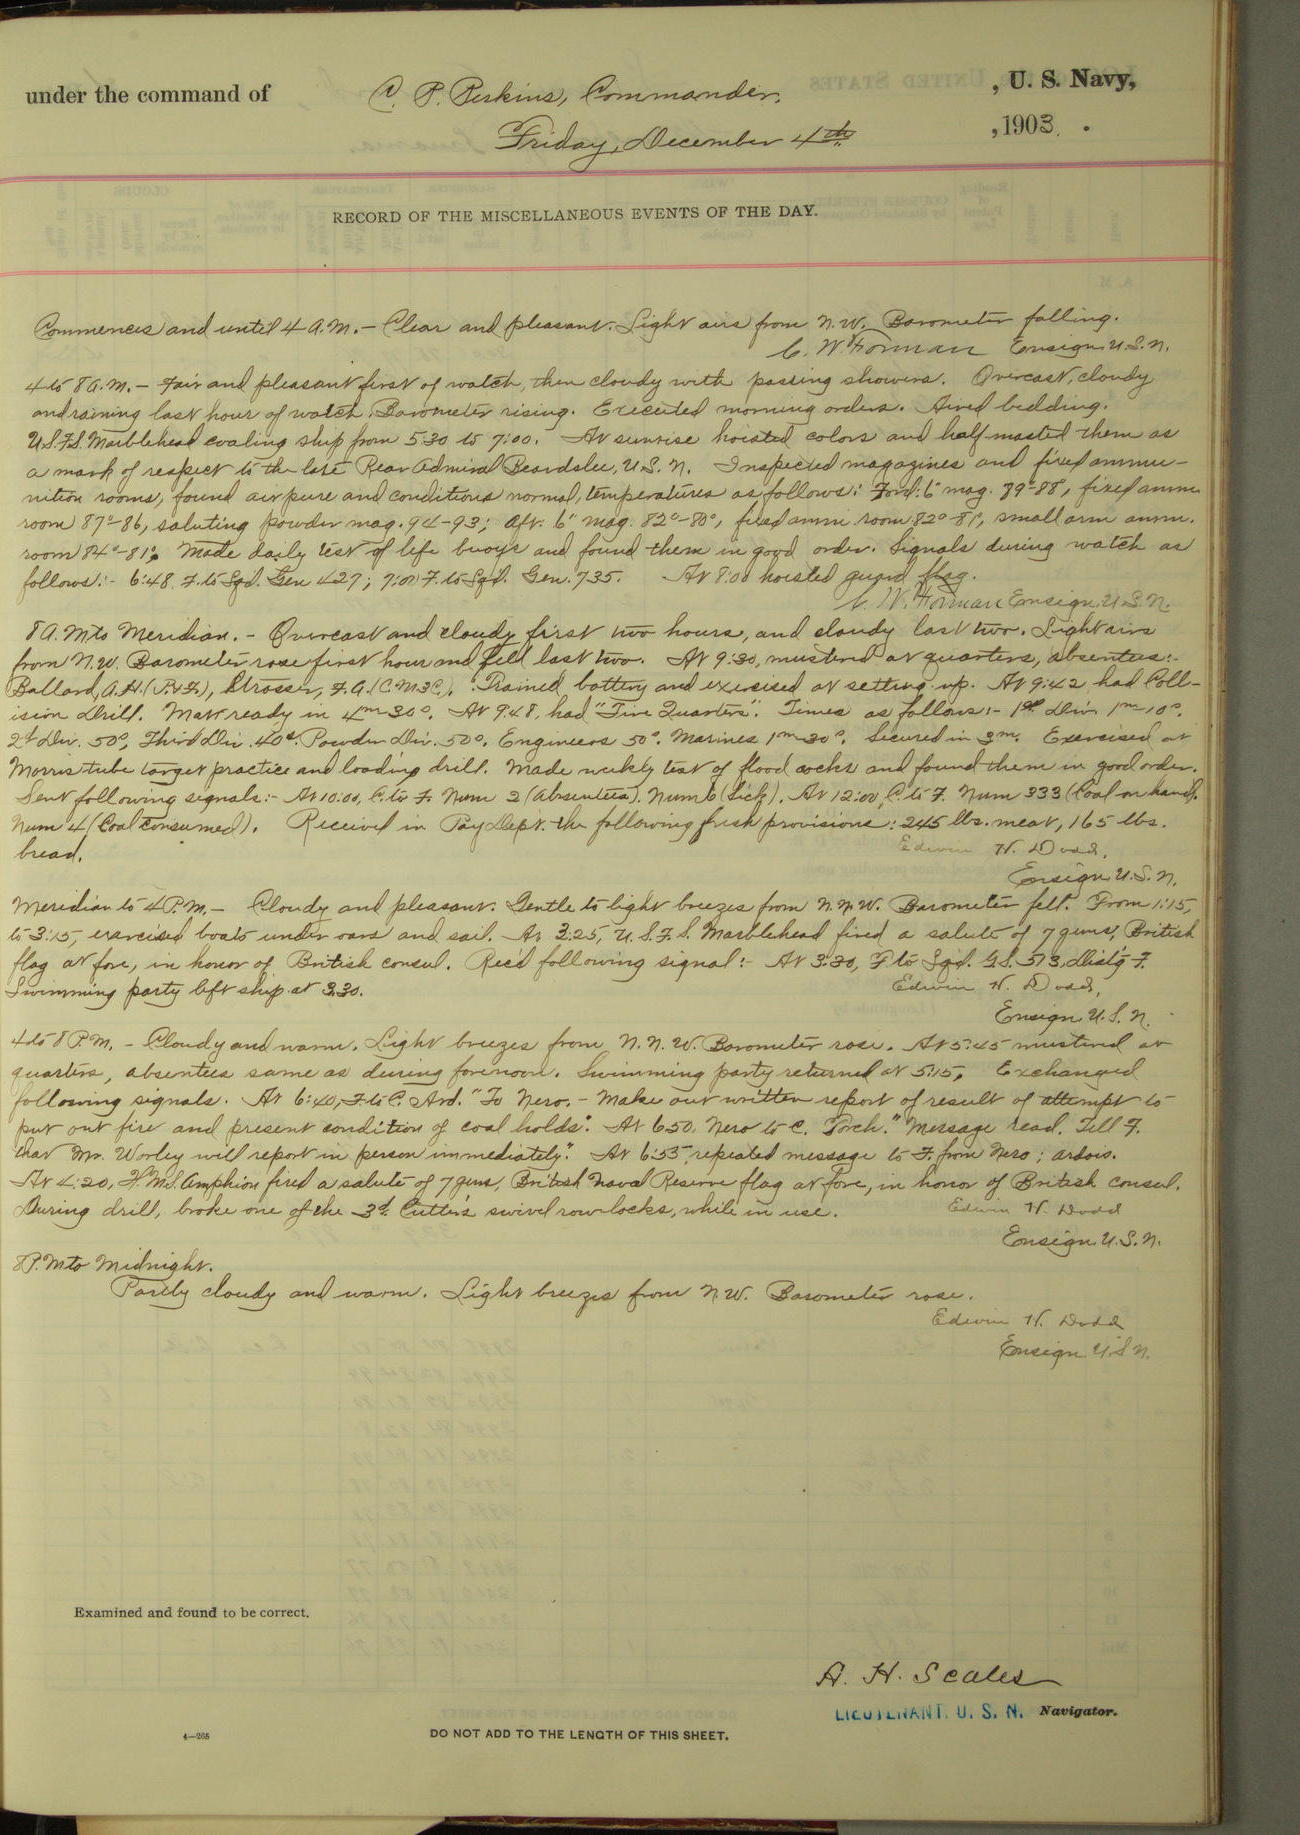 under the command of C. P. Perkins, Commander, , U. S. Navy,
Friday, December 4th , 1903.
RECORD OF THE MISCELLANEOUS EVENTS OF THE DAY.
Commences and until 4 A.M. – Clear and pleasant. Light airs from N.W. Barometer falling.
C. W. Forman Ensign U.S.N.
4 to 8 A.M. – Fair and pleasant first of watch, then cloudy with passing showers. Overcast, cloudy
and raining last hour of watch. Barometer rising. Executed morning orders. Aired bedding.
U.S.F.S. Marblehead coaling ship from 5:30 to 7:00. At sunrise hoisted colors and half-masted them as
a mark of respect to the late Rear Admiral Beardslee, U.S.N. Inspected magazines and fixed ammu-
nition rooms, found air pure and conditions normal, temperatures as follows: Ford: 6" mag. 89°-88, fixed ammn
room 87°-86, saluting powder mag. 94-93; Aft. 6" mag. 82°-80°, fixed ammn room 82°-81°, small arm ammn.
room 84°-81°. Made daily test of life buoys and found them in good order. Signals during watch as
follows:- 6:48 F. to Sqd. Gen 427; 7:00 F. to Sqd. Gen. 735. At 8:00 hoisted guard flag.
C. W. Forman Ensign U.S.N.
8 A.M. to Meridian. – Overcast and cloudy first two hours, and cloudy last two. Light airs
from N.W. Barometer rose first hour and fell last two. At 9:30, mustered at quarters, absentees:-
Ballard, A.H. (P.&F.), Strosser, F.A. (C.M.3C.). Trained battery and exercised at setting-up. At 9:42 had Coll-
ision Drill. Mat ready in 4m 30s. At 9:48, had "Fire Quarters". Times as follows:- 1st Div. 1m-10s.
2d Div. 50s, Third Div. 40s. Powder Div. 50s. Engineers 50s. Marines 1m 30s. Secured in 3m. Exercised at
Morris tube target practice and loading drill. Made weekly test of flood cocks and found them in good order.
Sent following signals:- At 10:00, C. to F. Num 2 (Absentees). Num 6 (Sick). At 12:00, C. to F. Num 333 (Coal on hand).
Num 4 (Coal consumed). Received in Pay Dept. the following fresh provisions: 245 lbs. meat, 165 lbs.
bread. Edwin H. Dodd,
Ensign U.S.N.
Meridian to 4 P.M. – Cloudy and pleasant. Gentle to light breezes from N.N.W. Barometer fell. From 1:15,
to 3:15, exercised boats under oars and sail. At 3:25, U.S.F.S. Marblehead fired a salute of 7 guns, British
flag at fore, in honor of British consul. Rec'd following signal:- At 3:30, F to Sqd. G.S. 513, distg F.
Swimming party left ship at 3:30. Edwin H. Dodd,
Ensign U.S.N.
4 to 8 P.M. – Cloudy and warm. Light breezes from N.N.W. Barometer rose. At 5:45 mustered at
quarters, absentees same as during forenoon. Swimming party returned at 5:15. Exchanged
following signals. At 6:40, F. to C. Ard. "To Nero. – Make out written report of result of attempt to
put out fire and present condition of coal holds". At 6:50, Nero to C. Torch. "Message read. Tell F.
that Mr. Worley will report in person immediately". At 6:55, repeated message to F. from Nero; ardois.
At 4:20, H.M.S. Amphion fired a salute of 7 guns, British Naval Reserve flag at fore, in honor of British consul.
During drill, broke one of the 3d. Cutter's swivel row-locks, while in use. Edwin H. Dodd
Ensign U.S.N.
8 P.M. to Midnight.
Partly cloudy and warm. Light breezes from N.W. Barometer rose.
Edwin H. Dodd
Ensign U.S.N.
Examined and found to be correct.
A. H. Scales
LIEUTENANT. U. S. N. Navigator.
4—268 DO NOT ADD TO THE LENGTH OF THIS SHEET.